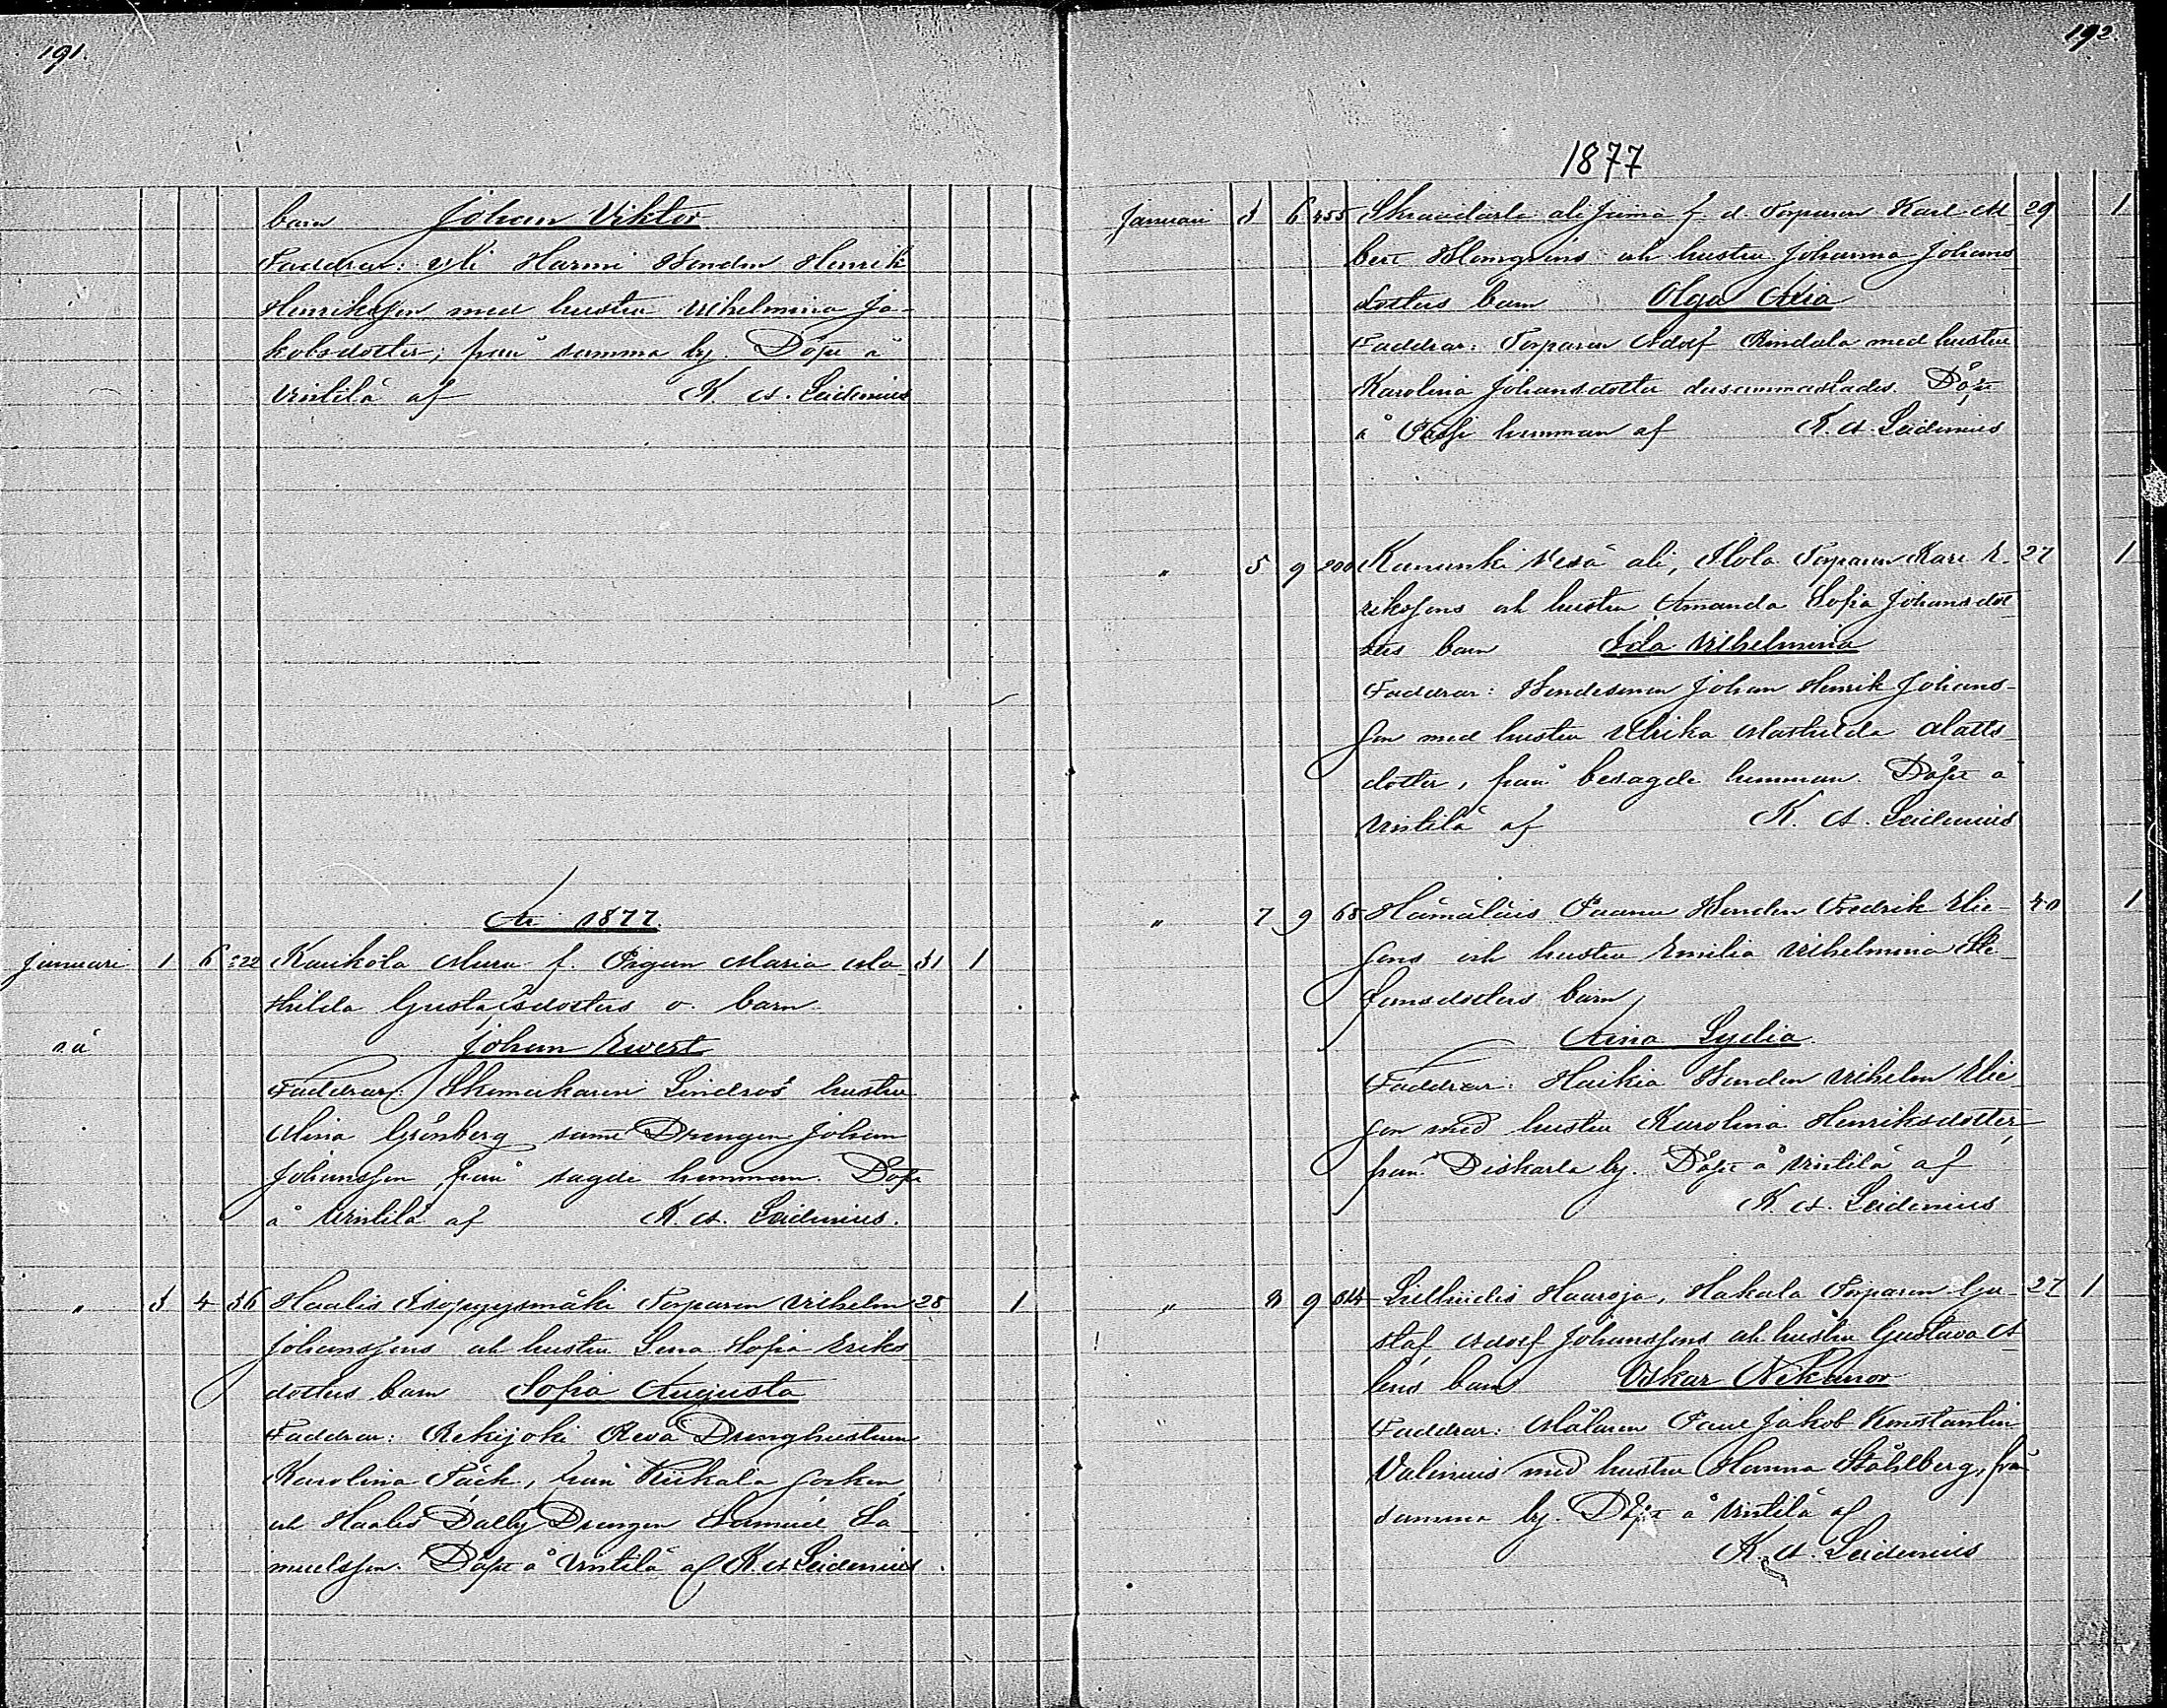 191.
barn Johan Viktor
Faddrar: Yli Harmi Bonden Henrik
Henriksson med hustru Vilhelmina Ja-
kobsdotter, från samma by. Döpt å
Vintilä af K. A. Leidenius
År 1877.
Januari 1 6 222 Kaukola Muru f. Pigan Maria Ma- 31 1
thilda Gustafsdotters o. barn
Johan Evert
Faddrar: Skomakaren Lindros hustru
Mina Grönberg samt Drengen Johan
Johansson, från sagde hemman. Döpt
å Vintilä af K. A. Leidenius.
" 3 4 36 Haalis Isopyysmäki Torparen Vilhelm 28 1
Johanssons och hustru Lena Sofia Eriks-
dotters barn Sofia Augusta
Faddrar: Rekijoki Reva Drenghustrun
Karolina Täck, från Kiikala socken
och Haalis Dally Drengen Samuel Sa-
muelsson. Döpt å Vintilä af K. A. Leidenius.
192.
1877
Januari 3 6 255 ali Juma f. d. Torparen Karl Al- 29 1
bert Blomqvists och hustru Johanna Johans
dotters barn Olga Maria
Faddrar: Torparen Adolf Rindala med hustru
Karolina Johansdotter dersammastädes. Döpt
å hemman af K. A. Leidenius
" 5 9 200 ali, Torparen Karl E- 27 1
rikssons och hustru Amanda Sofia Johansdot-
ters barn Ida Vilhelmina
Faddrar: Bondesonen Johan Henrik Johans-
son med hustru Ulrika Mathilda Matts-
dotter, från besagde hemman. Döpt å
Vintilä af K. A. Leidenius
" 7 9 68 Hämäläis Paanu Bonden Fredrik Elie- 40 1
sons och hustru Emilia Vilhelmina Ste-
fansdotters barn
Aina Lydia
Faddrar: Haikia Bonden Vilhelm Elie-
son med hustru Karolina Henriksdotter
från Diskarla by. Döpt å Vintilä af
K. A. Leidenius
" 8 9 314 Haaroja, Hakala Torparen Gu- 27 1
staf Adolf Johanssons och hustru Gustava A
lens barn Oskar Nikanor
Faddrar: Målaren Paul Jakob Konstantin
Valenius med hustru Hanna Ståhlberg, från
samma by. Döpt å Vintilä af
K. A. Leidenius